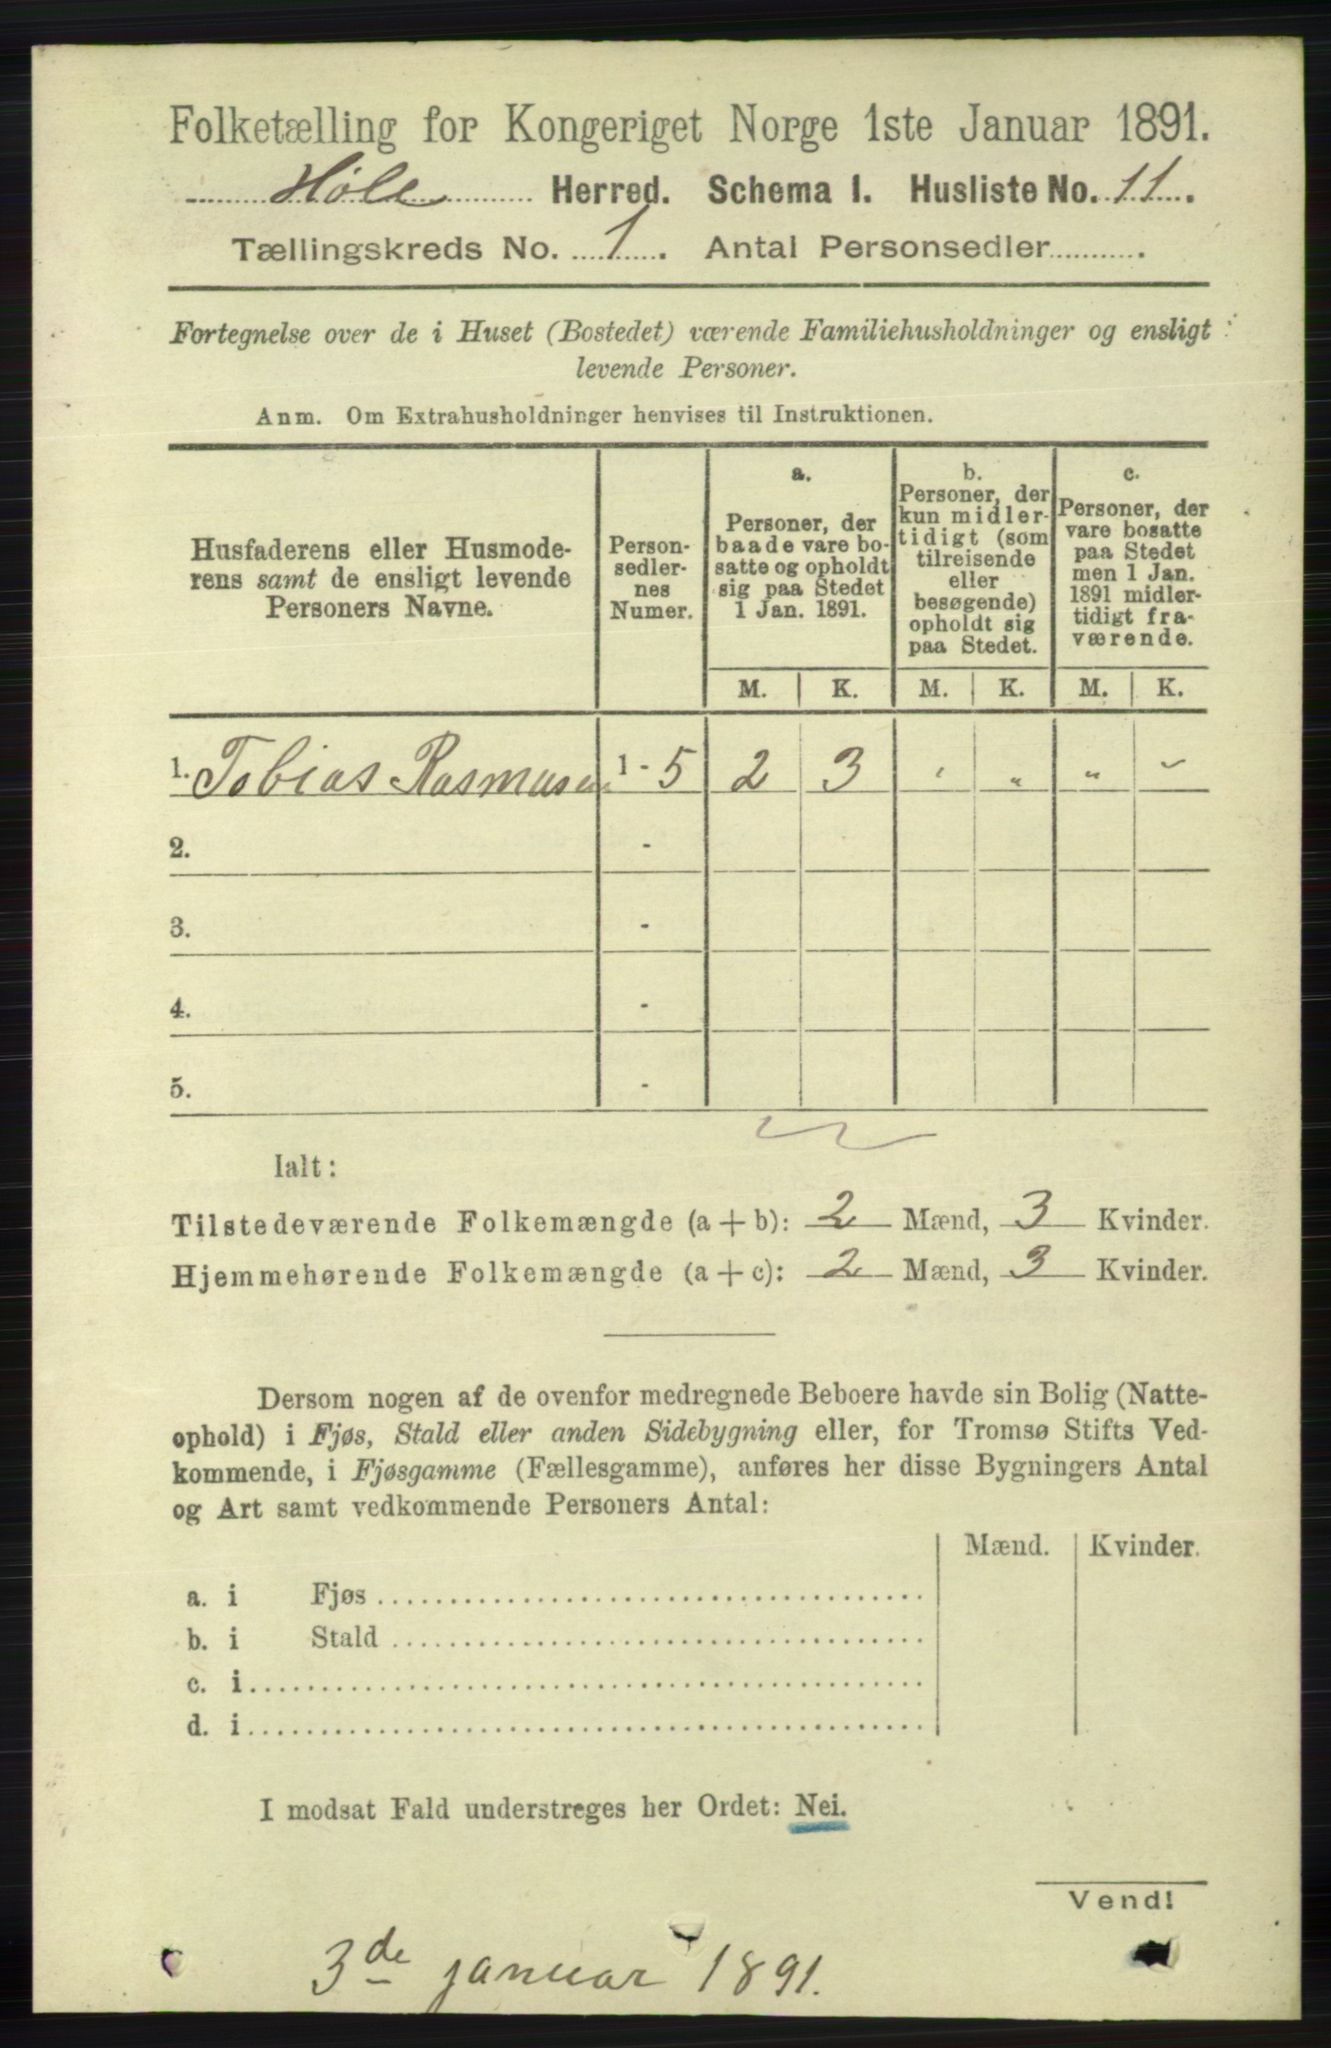 Folketælling for Kongeriget Norge 1ste Januar 1891.
Høle Herred. Schema 1. Husliste No. 11.
Tællingskreds No. 1. Antal Personsedler.
Fortegnelse over de i Huset (Bostedet) værende Familiehusholdninger og ensligt
levende Personer.
Anm. Om Extrahusholdninger henvises til Instruktionen.
Husfaderens eller Husmode-
rens samt de ensligt levende
Personers Navne.
Person-
sedler-
nes
Numer.
a.
Personer, der
baade vare bo-
satte og opholdt
sig paa Stedet
1 Jan. 1891.
b.
Personer, der
kun midler-
tidigt (som
tilreisende
eller
besøgende)
opholdt sig
paa Stedet.
c.
Personer, der
vare bosatte
paa Stedet
men 1 Jan.
1891 midler-
tidigt fra-
værende.
M. K. M. K. M. K.
1. Tobias Rasmusen 1 - 5 2 3 " " " "
2. -
3. -
4. -
5. -
Ialt:
Tilstedeværende Folkemængde (a + b): 2 Mænd, 3 Kvinder.
Hjemmehørende Folkemængde (a + c): 2 Mænd, 3 Kvinder.
Dersom nogen af de ovenfor medregnede Beboere havde sin Bolig (Natte-
ophold) i Fjøs, Stald eller anden Sidebygning eller, for Tromsø Stifts Ved-
kommende, i Fjøsgamme (Fællesgamme), anføres her disse Bygningers Antal
og Art samt vedkommende Personers Antal:
Mænd. Kvinder.
a. i Fjøs
b. i Stald
c. i
d. i
I modsat Fald understreges her Ordet: Nei.
Vend!
3de januar 1891.